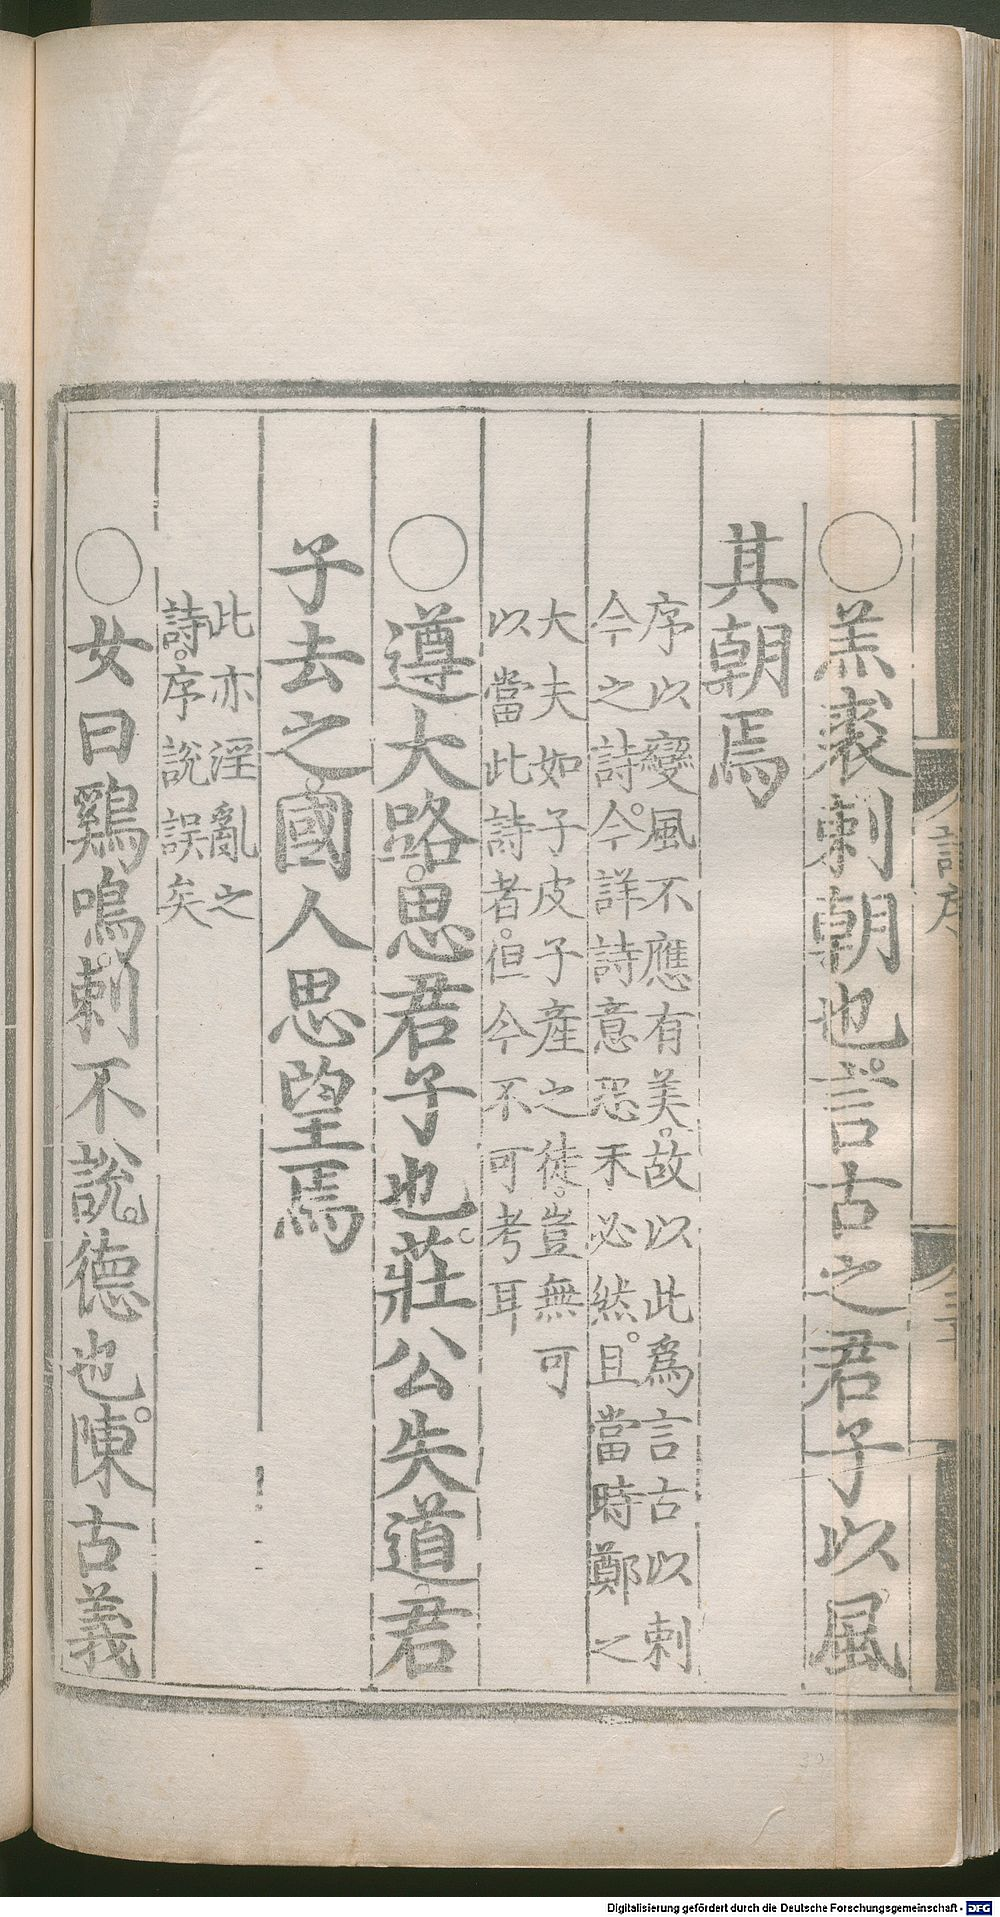 ○羔裘刺朝也。言古之君子以風
其朝焉
序以變風不應有美。故以此爲言古以刺
今之詩。今詳詩意恐未必然。且當時鄭之
大夫如子皮子産之徒。豈無可
以當此詩者。但今不可考耳
○遵大路。思君子也。莊公失道君
子去之。國人思望焉
此亦淫亂之
詩。序說誤矣
○女曰鷄鳴。刺不說。德也。陳古義
詩序
Digitalisierung gefördert durch die Deutsche Forschungsgemeinschaft - DFG